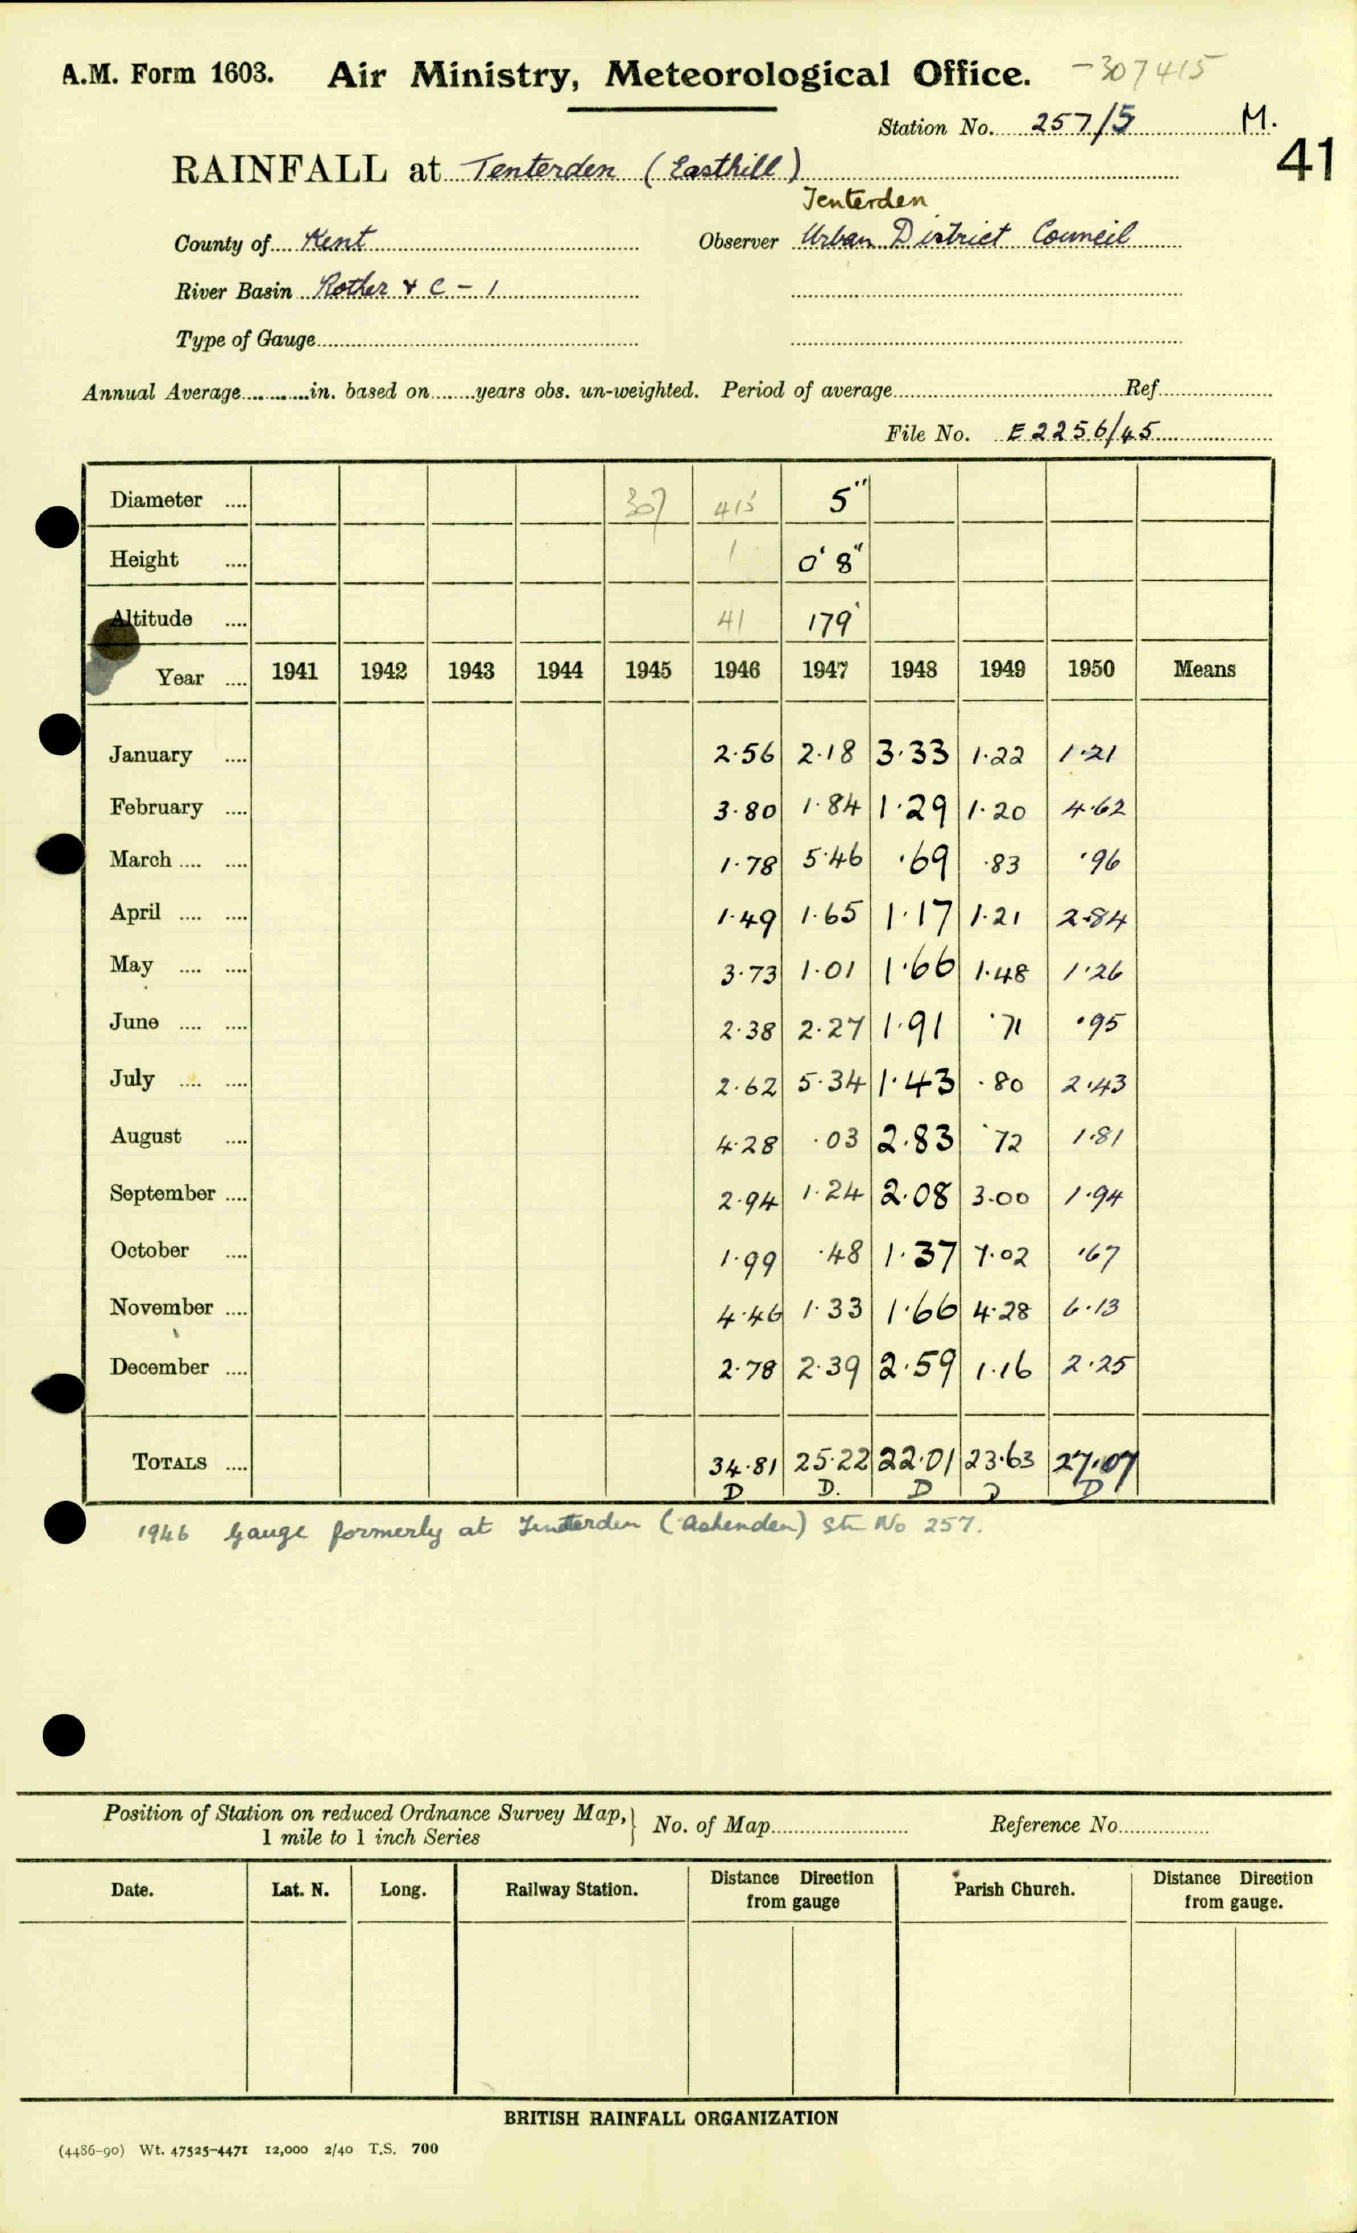 A.M. Form 1603. Air Ministry, Meteorological Office. -307415
Station No. 257/5 M.
41
RAINFALL at Tenterden (Easthill)
Tenterden
County of Kent Observer Urban District Council
River Basin Rother & C - 1
Type of Gauge
Annual Average in. based on years obs. un-weighted. Period of average Ref
File No. E2256/45
Diameter 307 415 5"
Height 1 0' 8"
Altitude 41 179'
Year 1941 1942 1943 1944 1945 1946 1947 1948 1949 1950 Means
January 2.56 2.18 3.33 1.22 1.21
February 3.80 1.84 1.29 1.20 4.62
March 1.78 5.46 .69 .83 .96
April 1.49 1.65 1.17 1.21 2.84
May 3.73 1.01 1.66 1.48 1.26
June 2.38 2.27 1.91 .71 .95
July 2.62 5.34 1.43 .80 2.43
August 4.28 .03 2.83 .72 1.81
September 2.94 1.24 2.08 3.00 1.94
October 1.99 .48 1.37 7.02 .67
November 4.46 1.33 1.66 4.28 6.13
December 2.78 2.39 2.59 1.16 2.25
TOTALS 34.81 25.22 22.01 23.63 27.07
D D. D D D
1946 Gauge formerly at Tenterden (Ashenden) Stn No 257.
Position of Station on reduced Ordnance Survey Map, 1 mile to 1 inch Series } No. of Map Reference No
Date. Lat. N. Long. Railway Station. Distance Direction from gauge Parish Church. Distance Direction from gauge.
BRITISH RAINFALL ORGANIZATION
(4486-90) Wt. 47525-4471 12,000 2/40 T.S. 700